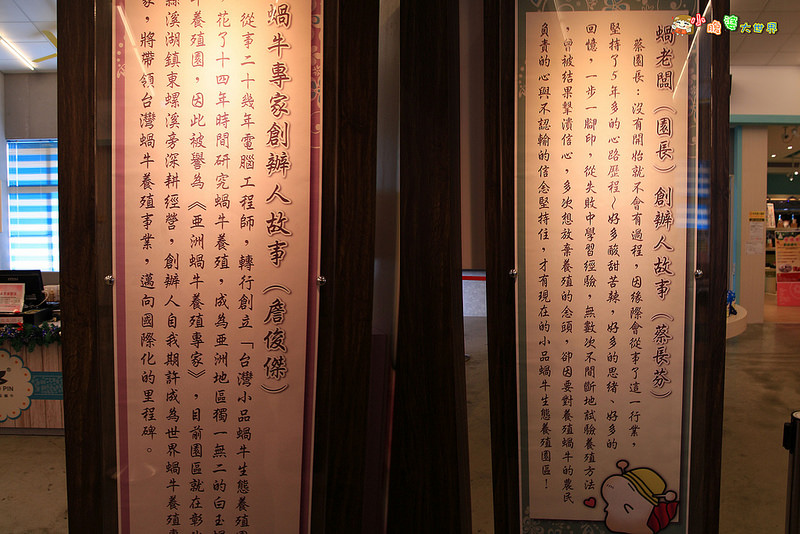 蝸牛專家創辦人故事（詹俊傑）
從事二十幾年電腦工程師，轉行創立「台灣小品蝸牛生態養殖園
，花了十四年時間研究蝸牛養殖，成為亞洲地區獨一無二的白玉蝸
牛養殖園，因此被譽為《亞洲蝸牛養殖專家》，目前園區就在彰
縣溪湖鎮東螺溪旁深耕經營，創辦人自我期許成為世界蝸牛養殖專
家，將帶領台灣蝸牛養殖事業，邁向國際化的里程碑。
蝸老闆（園長）創辦人故事（蔡長芬）
蔡園長：沒有開始就不會有過程，因緣際會從事了這一行業，
堅持了5年多的心路歷程～好多酸甜苦辣，好多的思緒、好多的
回憶，一步一腳印，從失敗中學習經驗，無數次不間斷地試驗養殖方法
，曾被結果擊潰信心，多次想放棄養殖的念頭，卻因要對養殖蝸牛的農民
負責的心與不認輸的信念堅持住，才有現在的小品蝸牛生態養殖園區！
小腹婆大世界
PIN